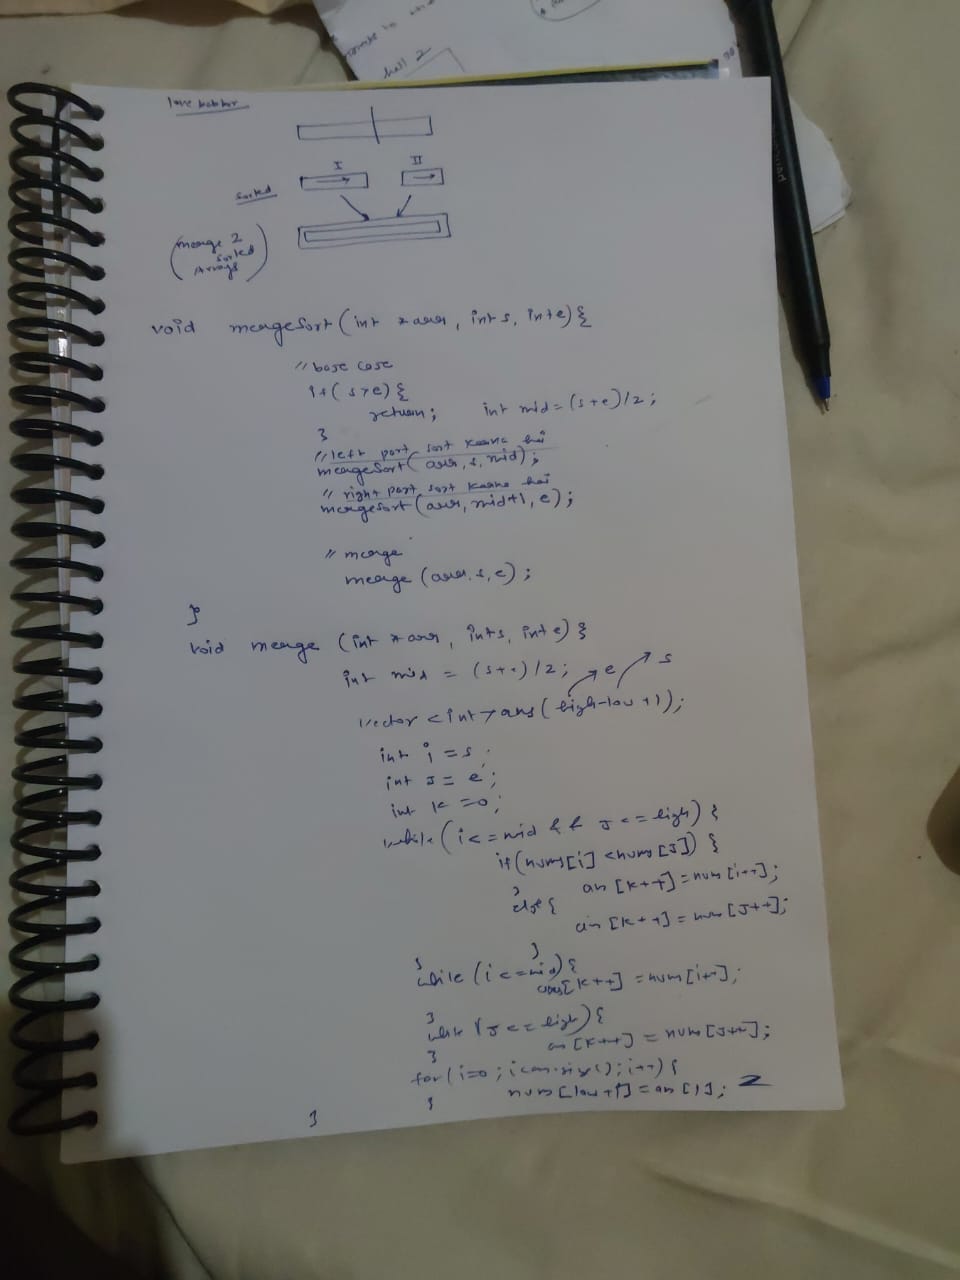 hall 2
love babbar
I II
sorted
(merge 2
sorted
Arrays)
void mergeSort(int *arr, int s, int e){
// base case
if(s>e){
return; int mid=(s+e)/2;
}
// left part sort karna hai
mergeSort(arr, s, mid);
// right part sort karna hai
mergeSort(arr, mid+1, e);
// merge
merge (arr, s, e);
}
void merge (int *arr, int s, int e){
int mid = (s+e)/2; e s
vector<int>ans(high-low+1);
int i = s;
int J = e;
int k = 0;
while(i<=mid && J<=high) {
if(nums[i]<nums[J]) {
an[k++]=num[i++];
}
else{
an[k++]=num[J++];
}
}
while (i<=mid){
ans[k++]=num[i++];
}
while (J<=high){
an[k++] = nums[J++];
}
for(i=0; i<an.size(); i++){
nums[low+i]=an[i];
}
}